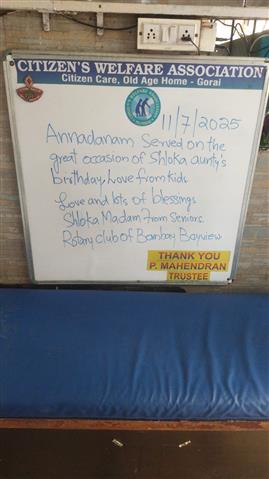 CITIZEN'S WELFARE ASSOCIATION
Citizen Care, Old Age Home - Gorai
11/7/2025
Annadanam Served on the
great occasion of Shloka aunty's
birthday, Love from kids
Love and lots of blessings
Shloka Madam from Seniors.
Rotary club of Bombay Bayview
THANK YOU
P. MAHENDRAN
TRUSTEE